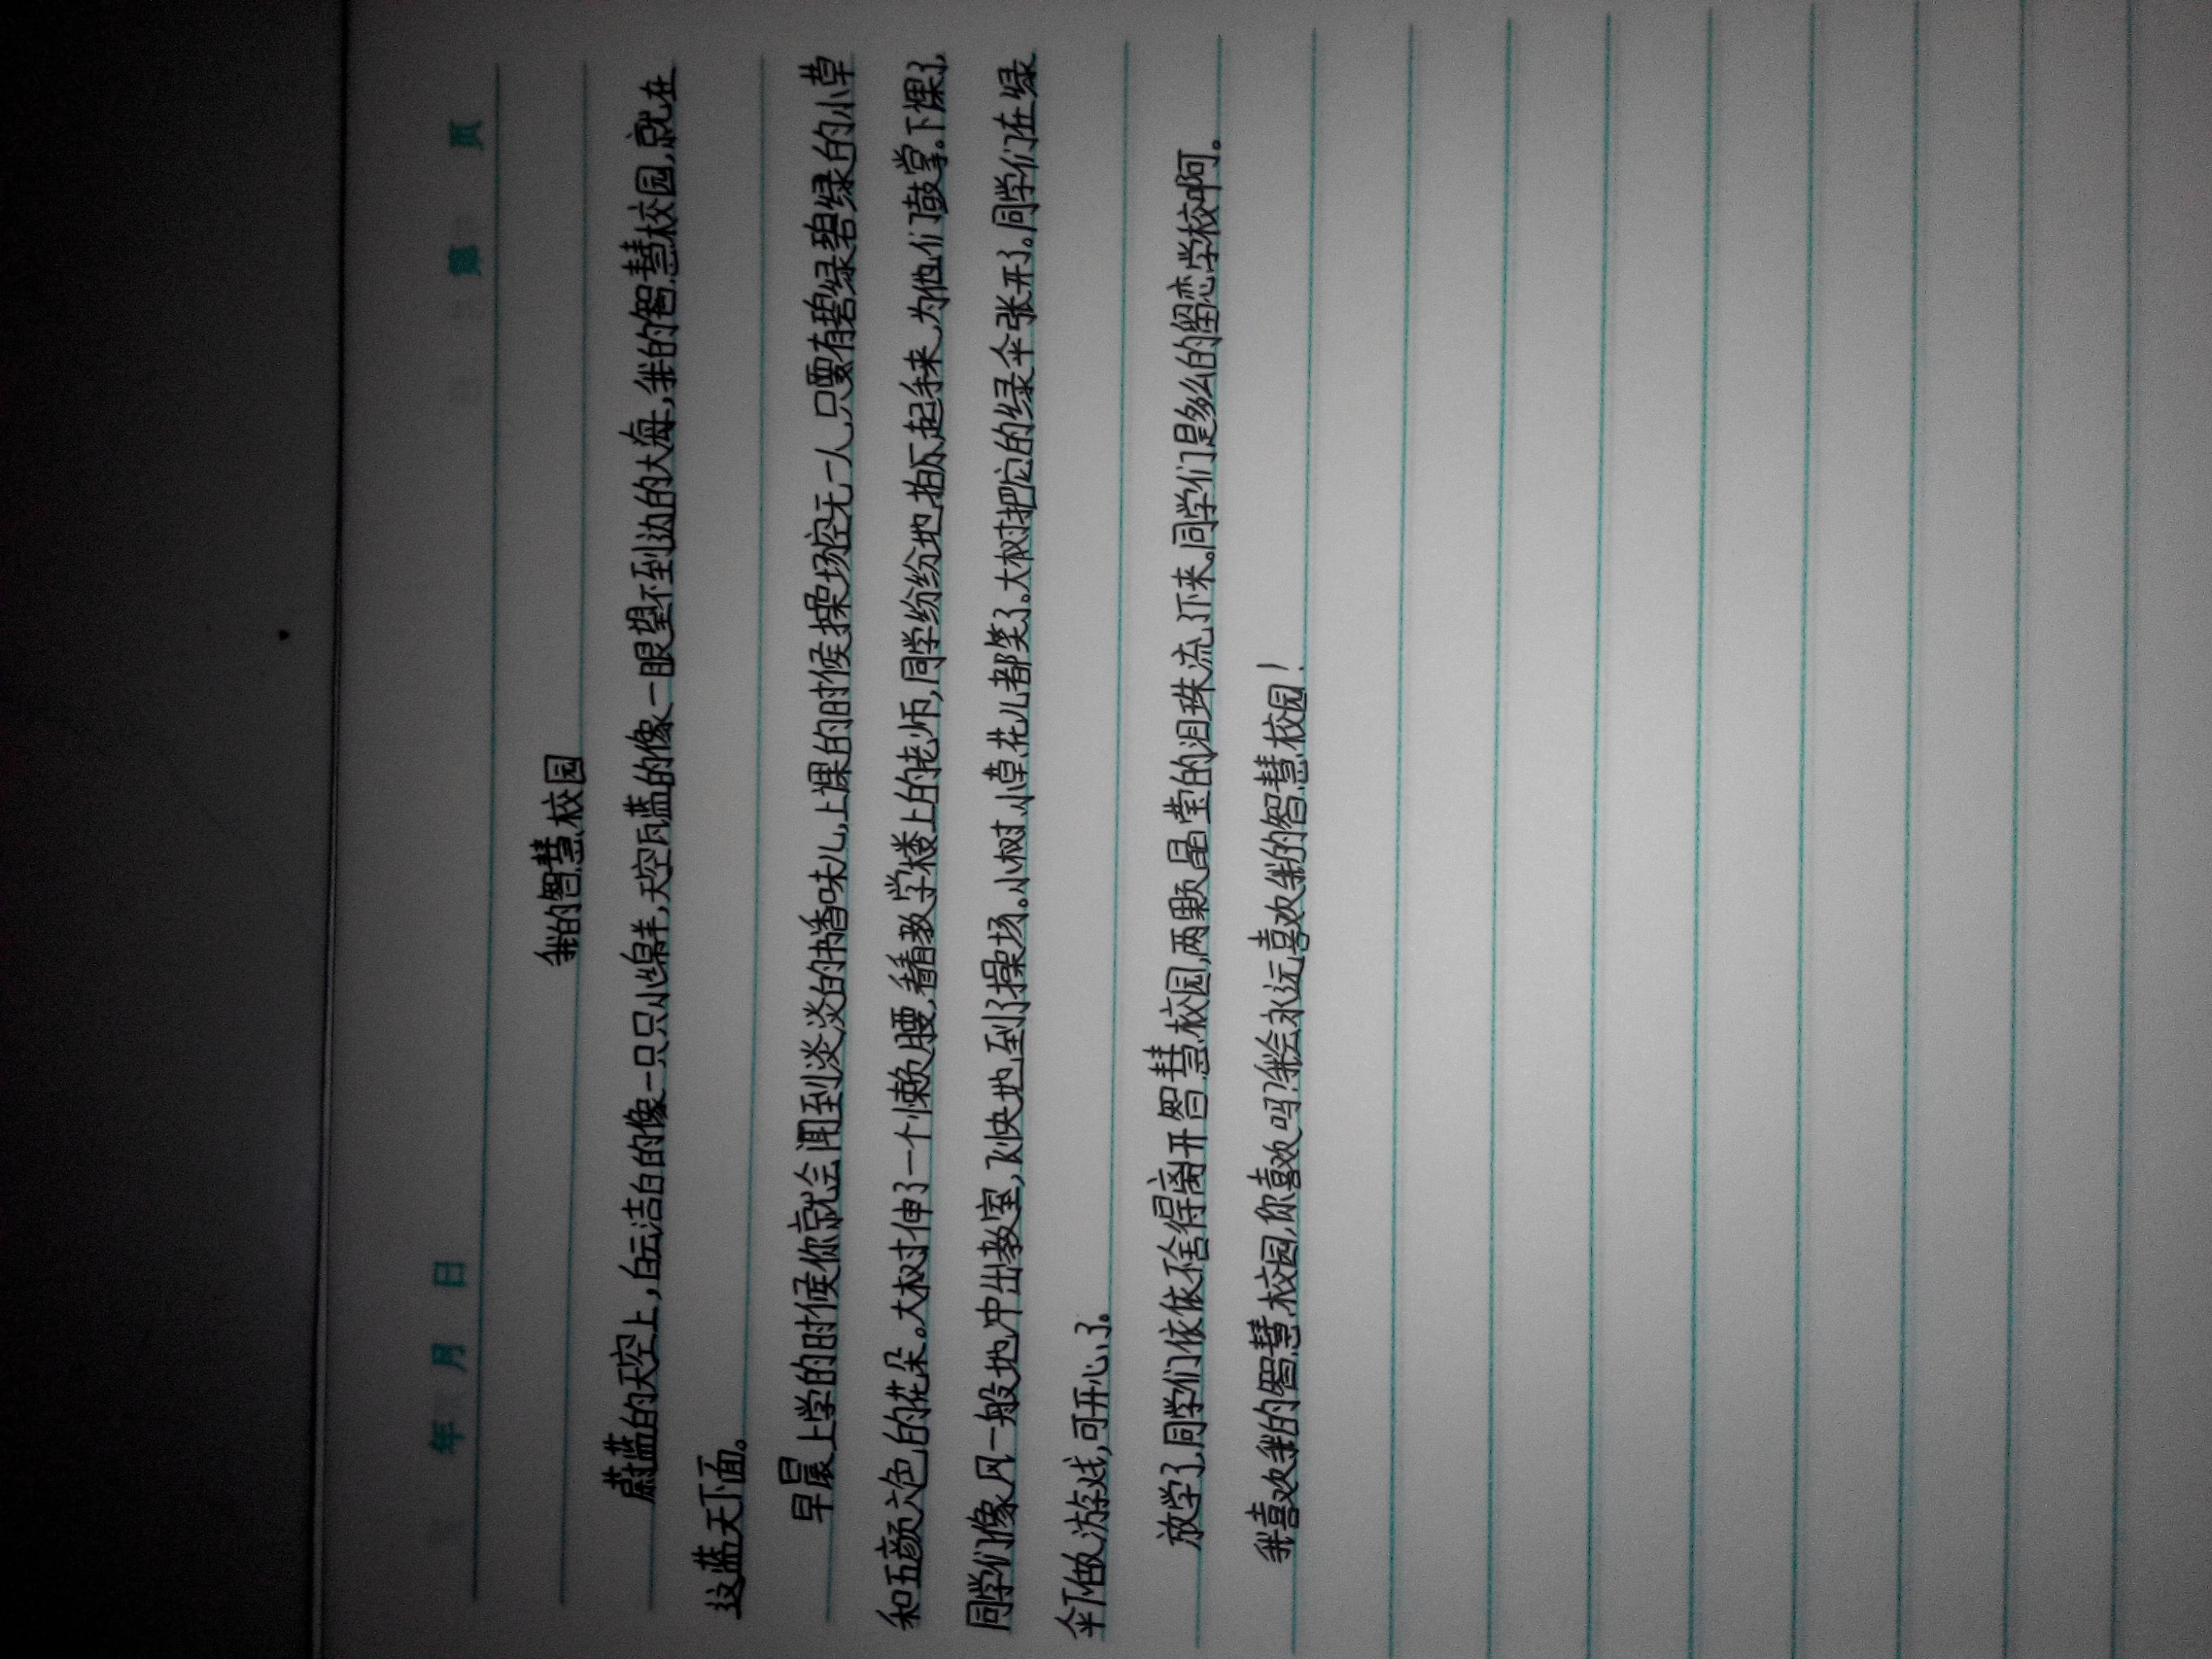 年 月 日 第 页
我的智慧校园
蔚蓝的天空上,白云洁白的像一只只小绵羊,天空瓦蓝的像一眼望不到边的大海,我的智慧校园,就在
这蓝天下面。
早晨上学的时候你就会闻到淡淡的书香味儿,上课的时候操场空无一人,只要有碧绿碧绿的小草
和五颜六色的花朵。大树伸了一个懒腰,看着教学楼上的老师,同学纷纷地拍起手来,为他们鼓掌。下课了,
同学们像风一般地冲出教室,飞快地到了操场。小树、小草、花儿都笑了。大树把它的绿伞张开了。同学们在绿
伞下做游戏,可开心了。
放学了,同学们依依不舍得离开智慧校园,两颗晶莹的泪珠流了下来。同学们是多么的留恋学校啊。
我喜欢我的智慧校园,你喜欢吗?我会永远喜欢我的智慧校园!